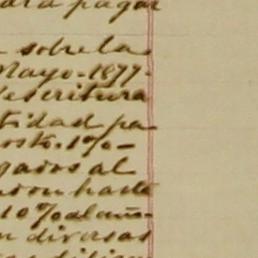 para pagar
sobre las
Mayo-1877-
escritura
tidad pa
osto. 1%-
gados al
hasta
10% al año-
n diversas